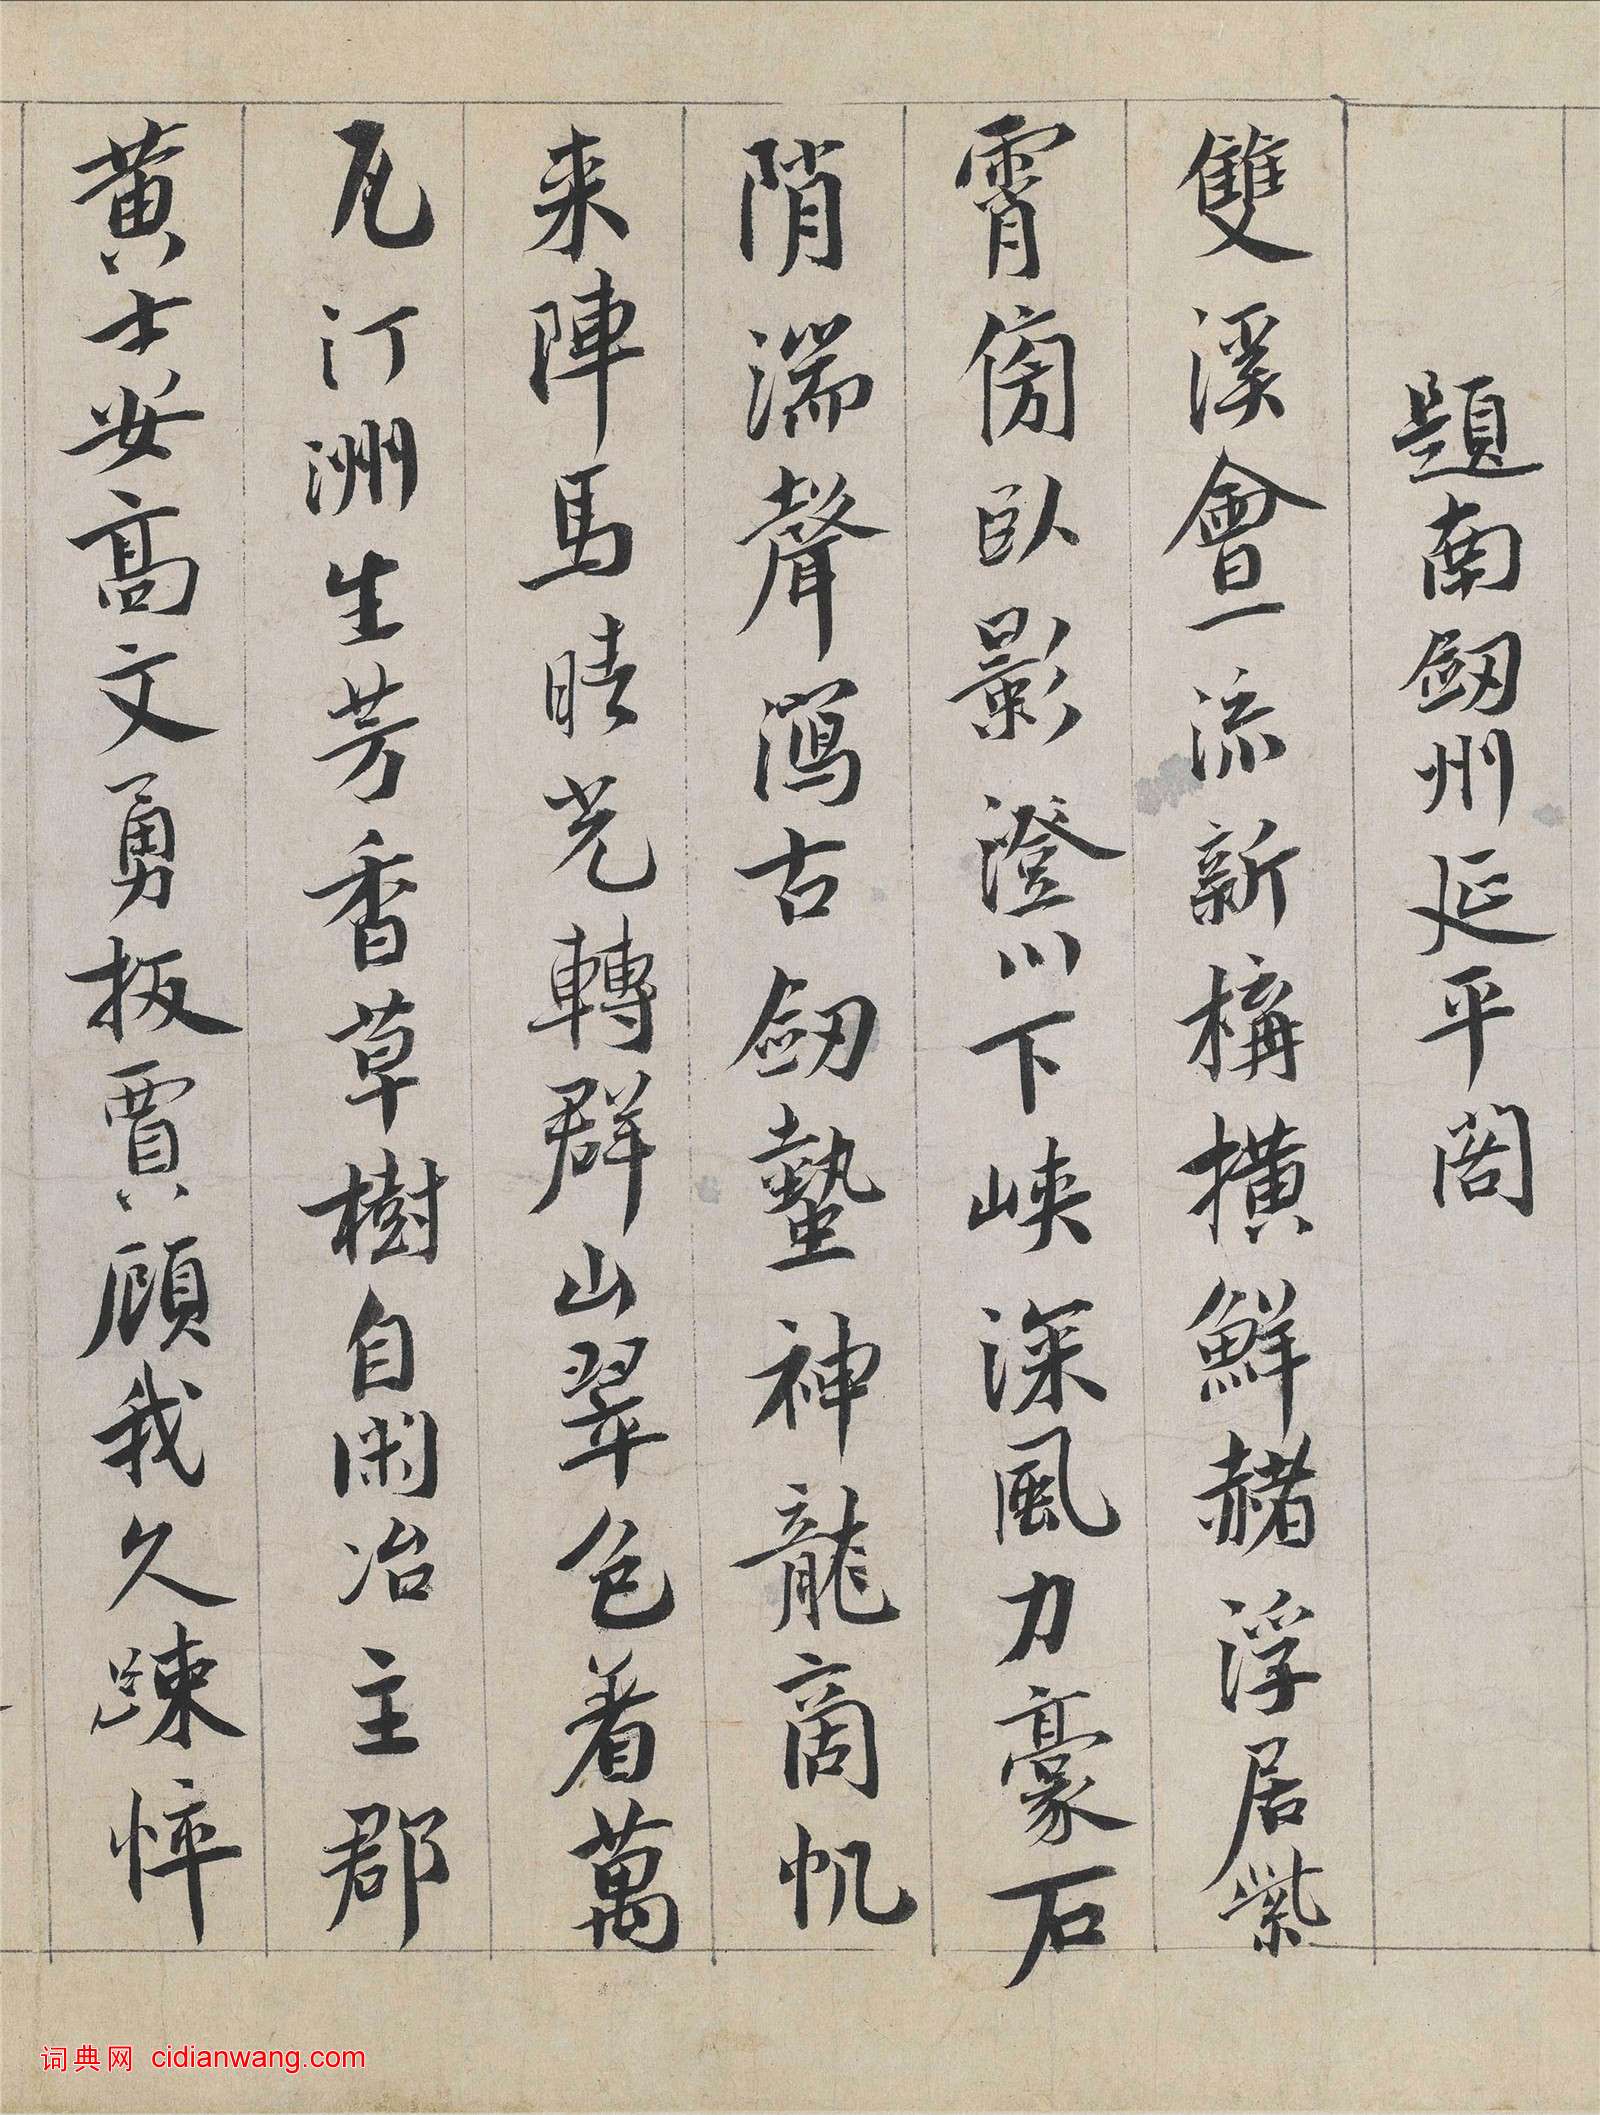 題南劔州延平閣
雙溪會一流新構橫鮮赭浮居紫
霄傍臥影澄川下峽深風力豪石
陗湍聲瀉古劔蟄神龍商帆
来陣馬晴光轉群山翠色着萬
瓦汀洲生芳香草樹自閑冶主郡
黃士安高文勇扳賈顧我久踈悴
词典网 cidianwang.com